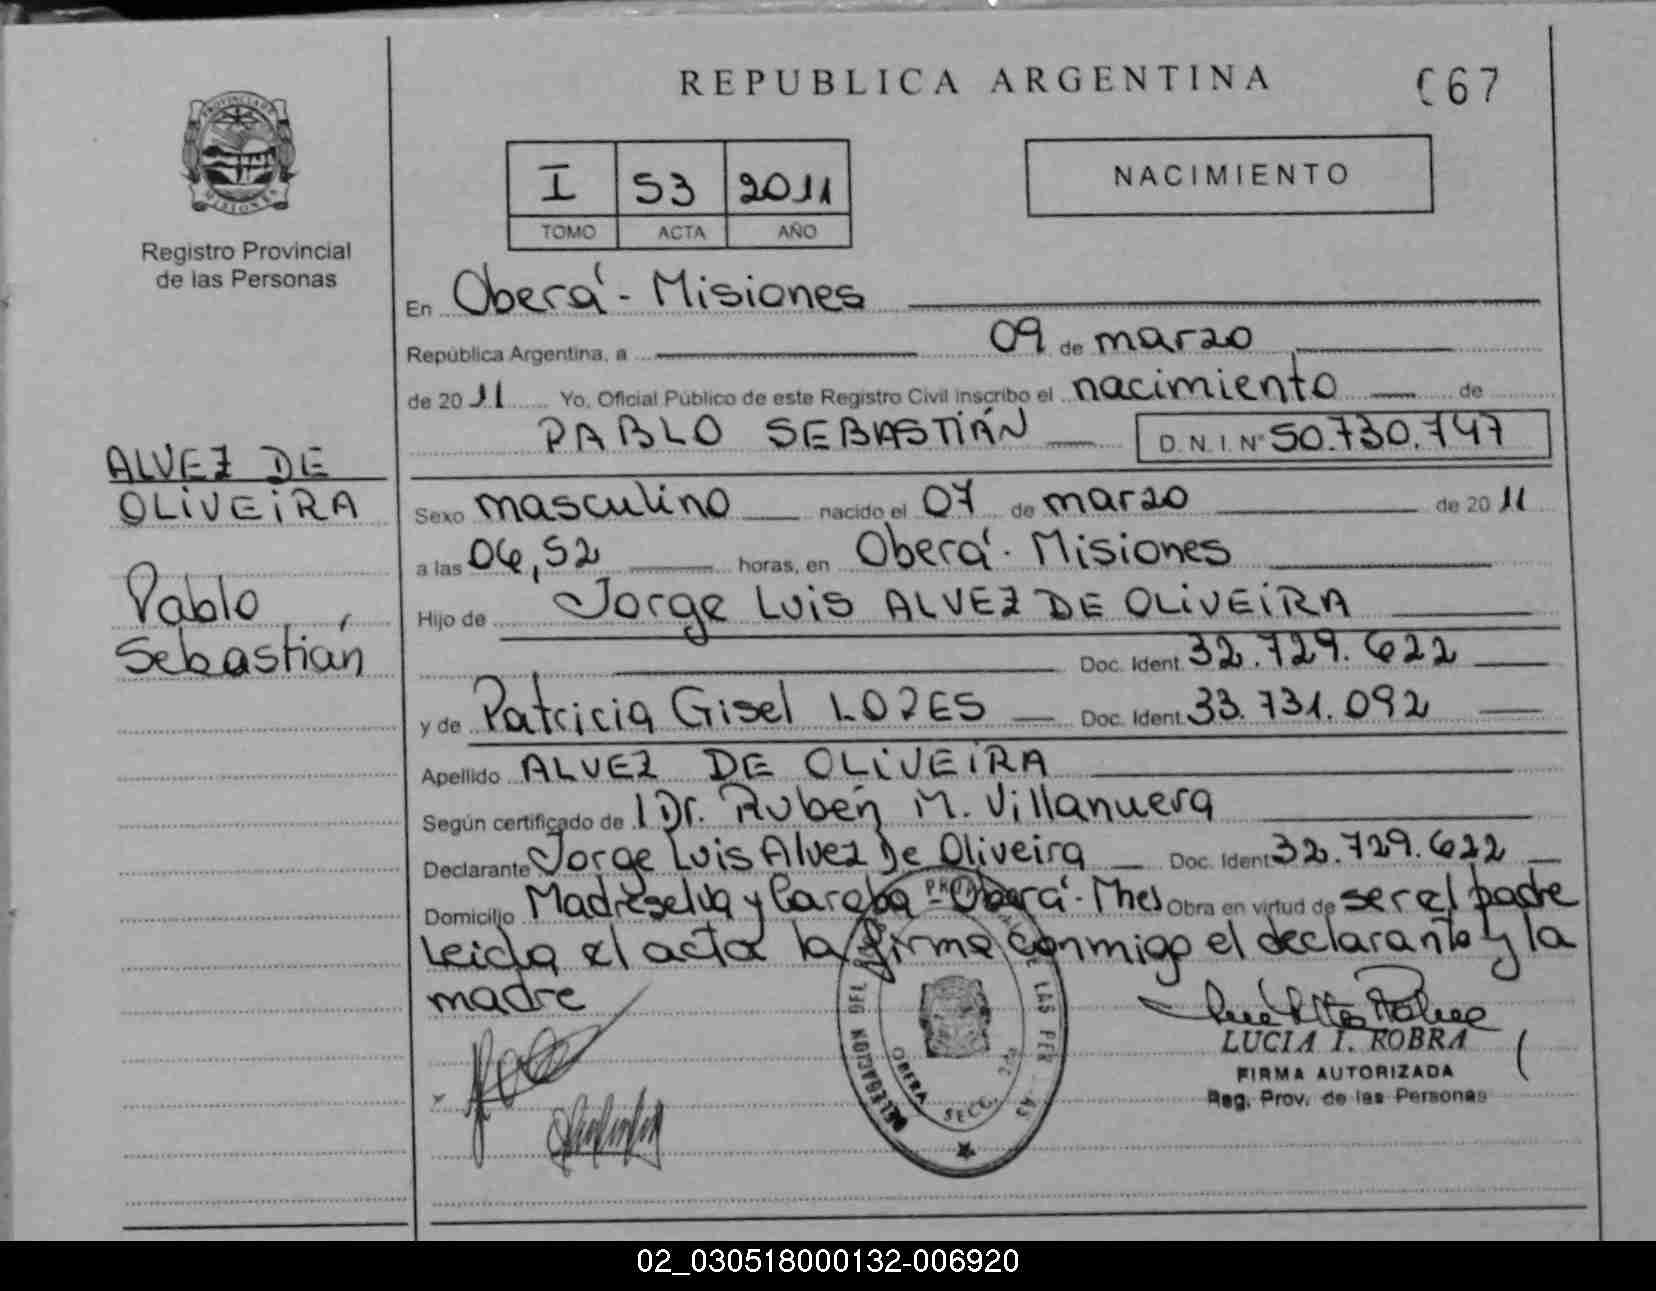 REPUBLICA ARGENTINA
067
PROVINCIA DE
MISIONES
Registro Provincial
de las Personas
I 53 2011
TOMO ACTA AÑO
NACIMIENTO
En Oberá - Misiones
República Argentina, a 09 de marzo
de 2011 Yo, Oficial Público de este Registro Civil inscribo el nacimiento de
PABLO SEBASTIÁN D.N.I. Nº 50.730.747
ALVEZ DE
OLIVEIRA
Pablo
Sebastián
Sexo masculino nacido el 07 de marzo de 2011
a las 06,52 horas, en Oberá - Misiones
Hijo de Jorge Luis ALVEZ DE OLIVEIRA
Doc. Ident. 32.729.622
y de Patricia Gisel LOPES Doc. Ident. 33.731.092
Apellido ALVEZ DE OLIVEIRA
Según certificado de Dr. Rubén M. Villanueva
Declarante Jorge Luis Alvez De Oliveira Doc. Ident. 32.729.622
Domicilio Madreselva y - Oberá - Mnes Obra en virtud de ser el padre
Leida el acta la firma conmigo el declarante y la
madre
DELEGACION DEL LAS PER AS
OBERA SECC.
LUCIA I. ROBRA
FIRMA AUTORIZADA
Reg. Prov. de las Personas
02_030518000132-006920